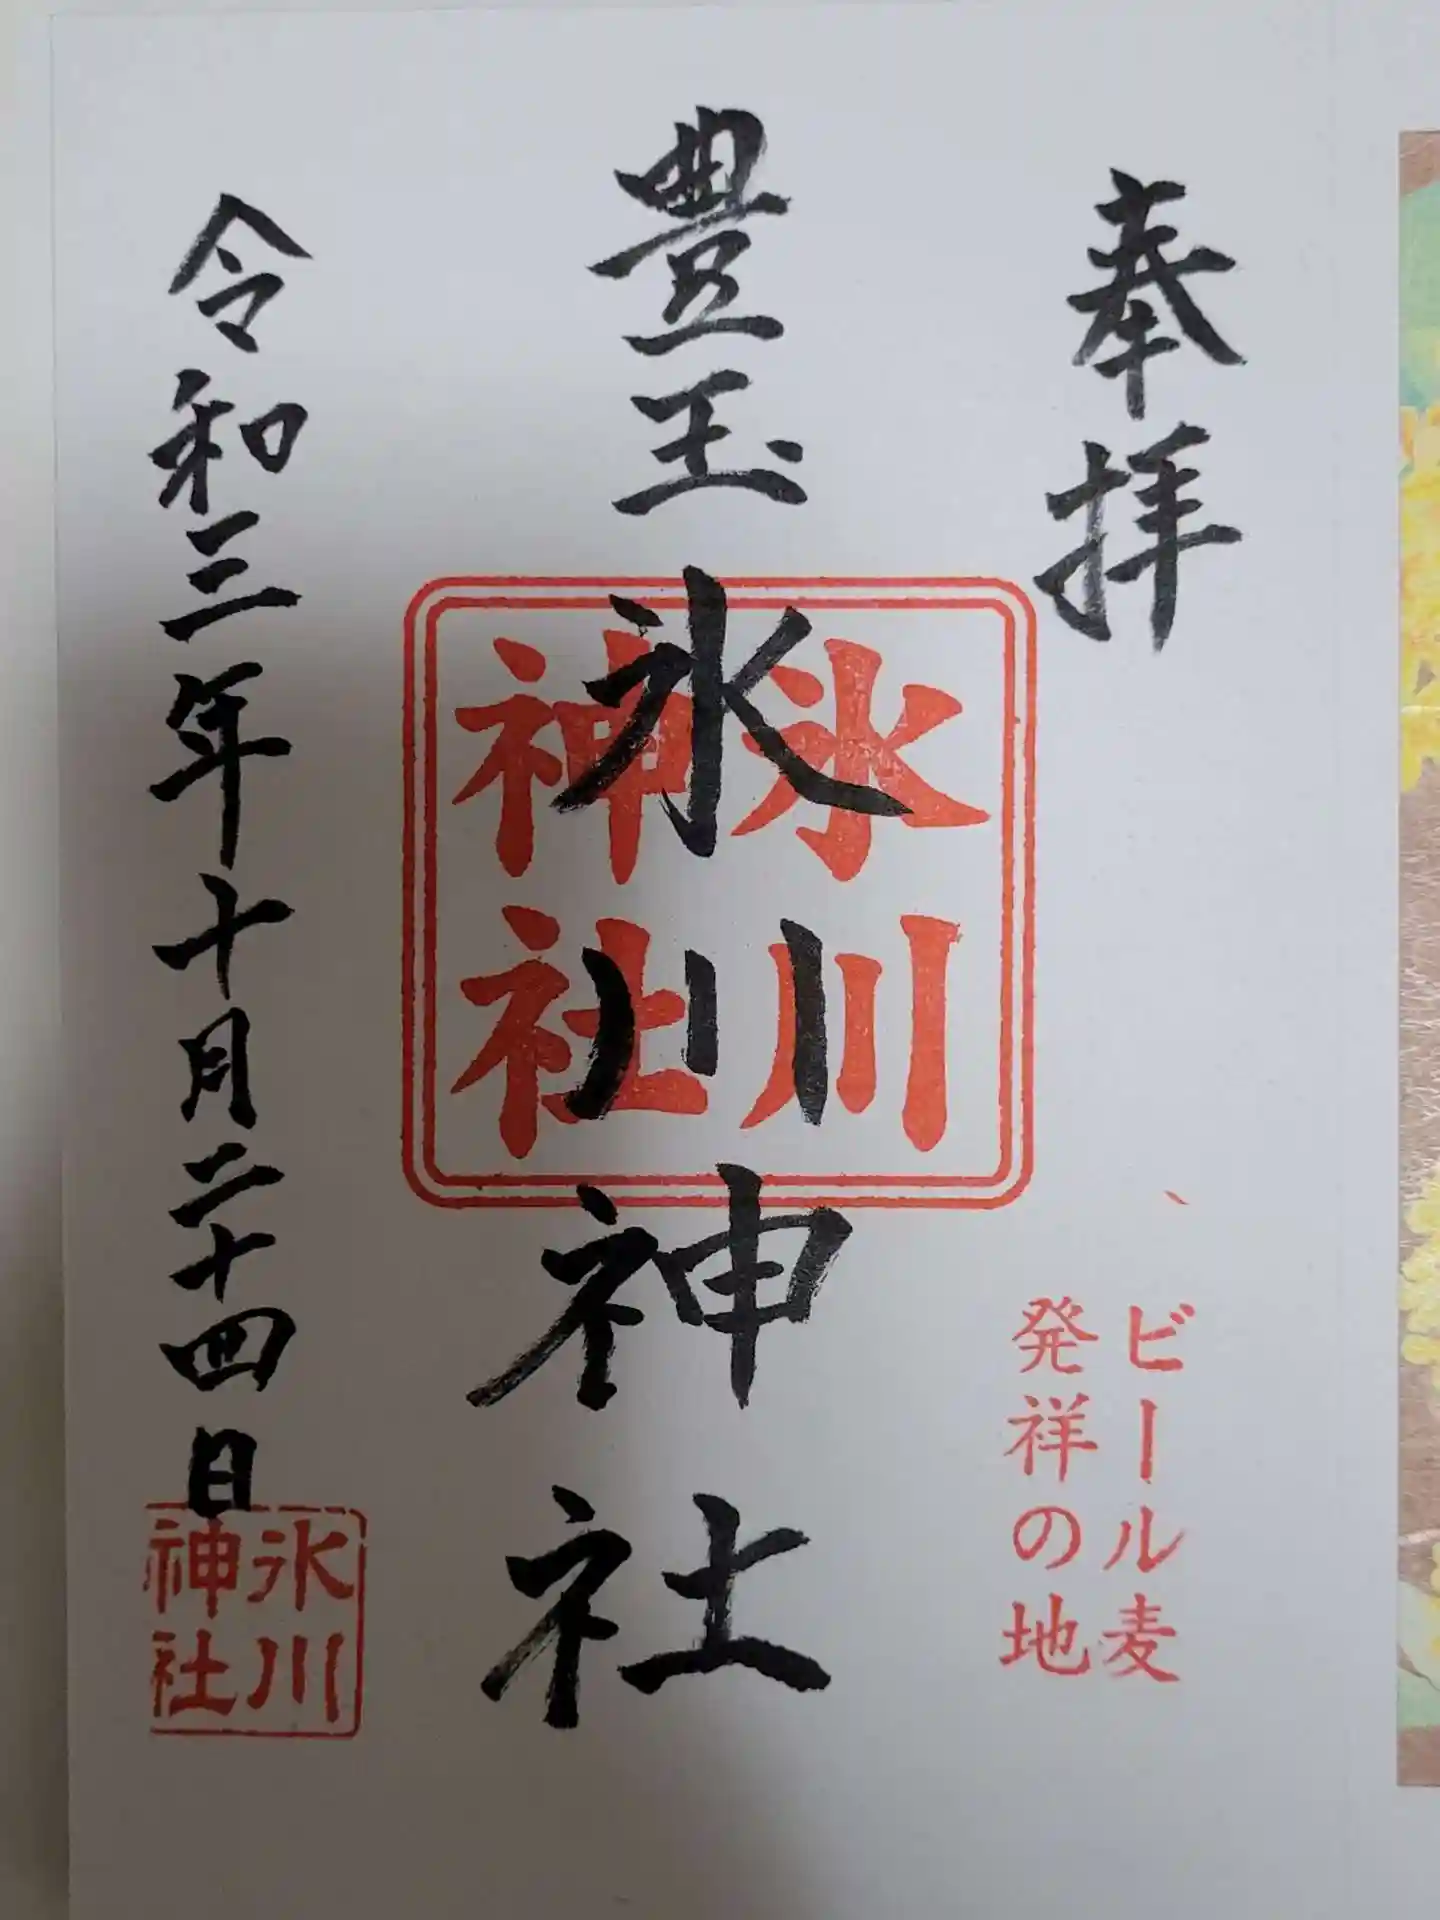 奉拝
ビール麦
発祥の地
豊玉氷川神社
氷川
神社
令和三年十月二十四日
氷川
神社